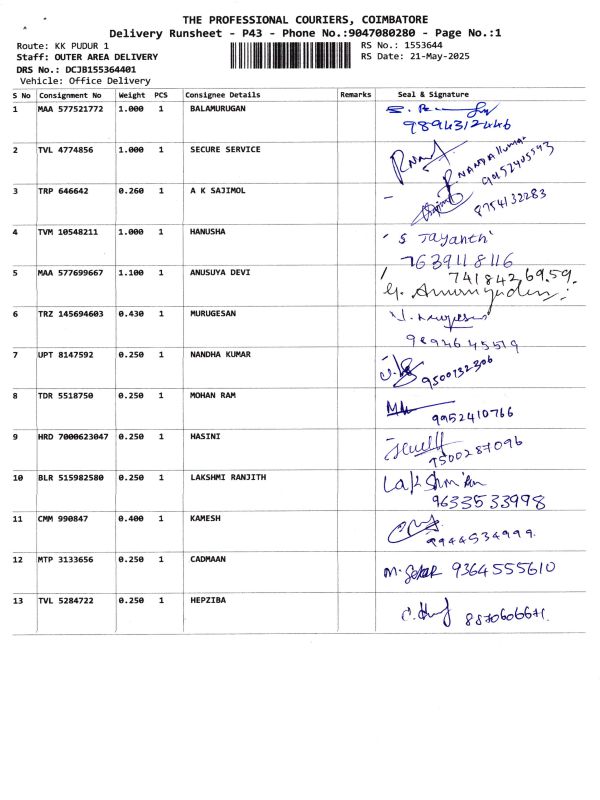 THE PROFESSIONAL COURIERS, COIMBATORE
Delivery Runsheet - P43 - Phone No.:9047080280 - Page No.:1
Route: KK PUDUR 1 RS No.: 1553644
Staff: OUTER AREA DELIVERY RS Date: 21-May-2025
DRS No.: DCJB155364401
Vehicle: Office Delivery
S No Consignment No Weight PCS Consignee Details Remarks Seal & Signature
1 MAA 577521772 1.000 1 BALAMURUGAN
9894312446
2 TVL 4774856 1.000 1 SECURE SERVICE
NANDAKumar
9952405543
3 TRP 646642 0.260 1 A K SAJIMOL
8754132283
4 TVM 10548211 1.000 1 HANUSHA S Jayanthi
7639118116
5 MAA 577699667 1.100 1 ANUSUYA DEVI 741842 69.59.
6 TRZ 145694603 0.430 1 MURUGESAN
9894645519
7 UPT 8147592 0.250 1 NANDHA KUMAR
9500732306
8 TDR 5518750 0.250 1 MOHAN RAM
9952410766
9 HRD 7000623047 0.250 1 HASINI
7500287096
10 BLR 515982580 0.250 1 LAKSHMI RANJITH Lakshmi
9633533998
11 CMM 990847 0.400 1 KAMESH
9944534999.
12 MTP 3133656 0.250 1 CADMAAN M. Sekar 9364555610
13 TVL 5284722 0.250 1 HEPZIBA
8870606671.